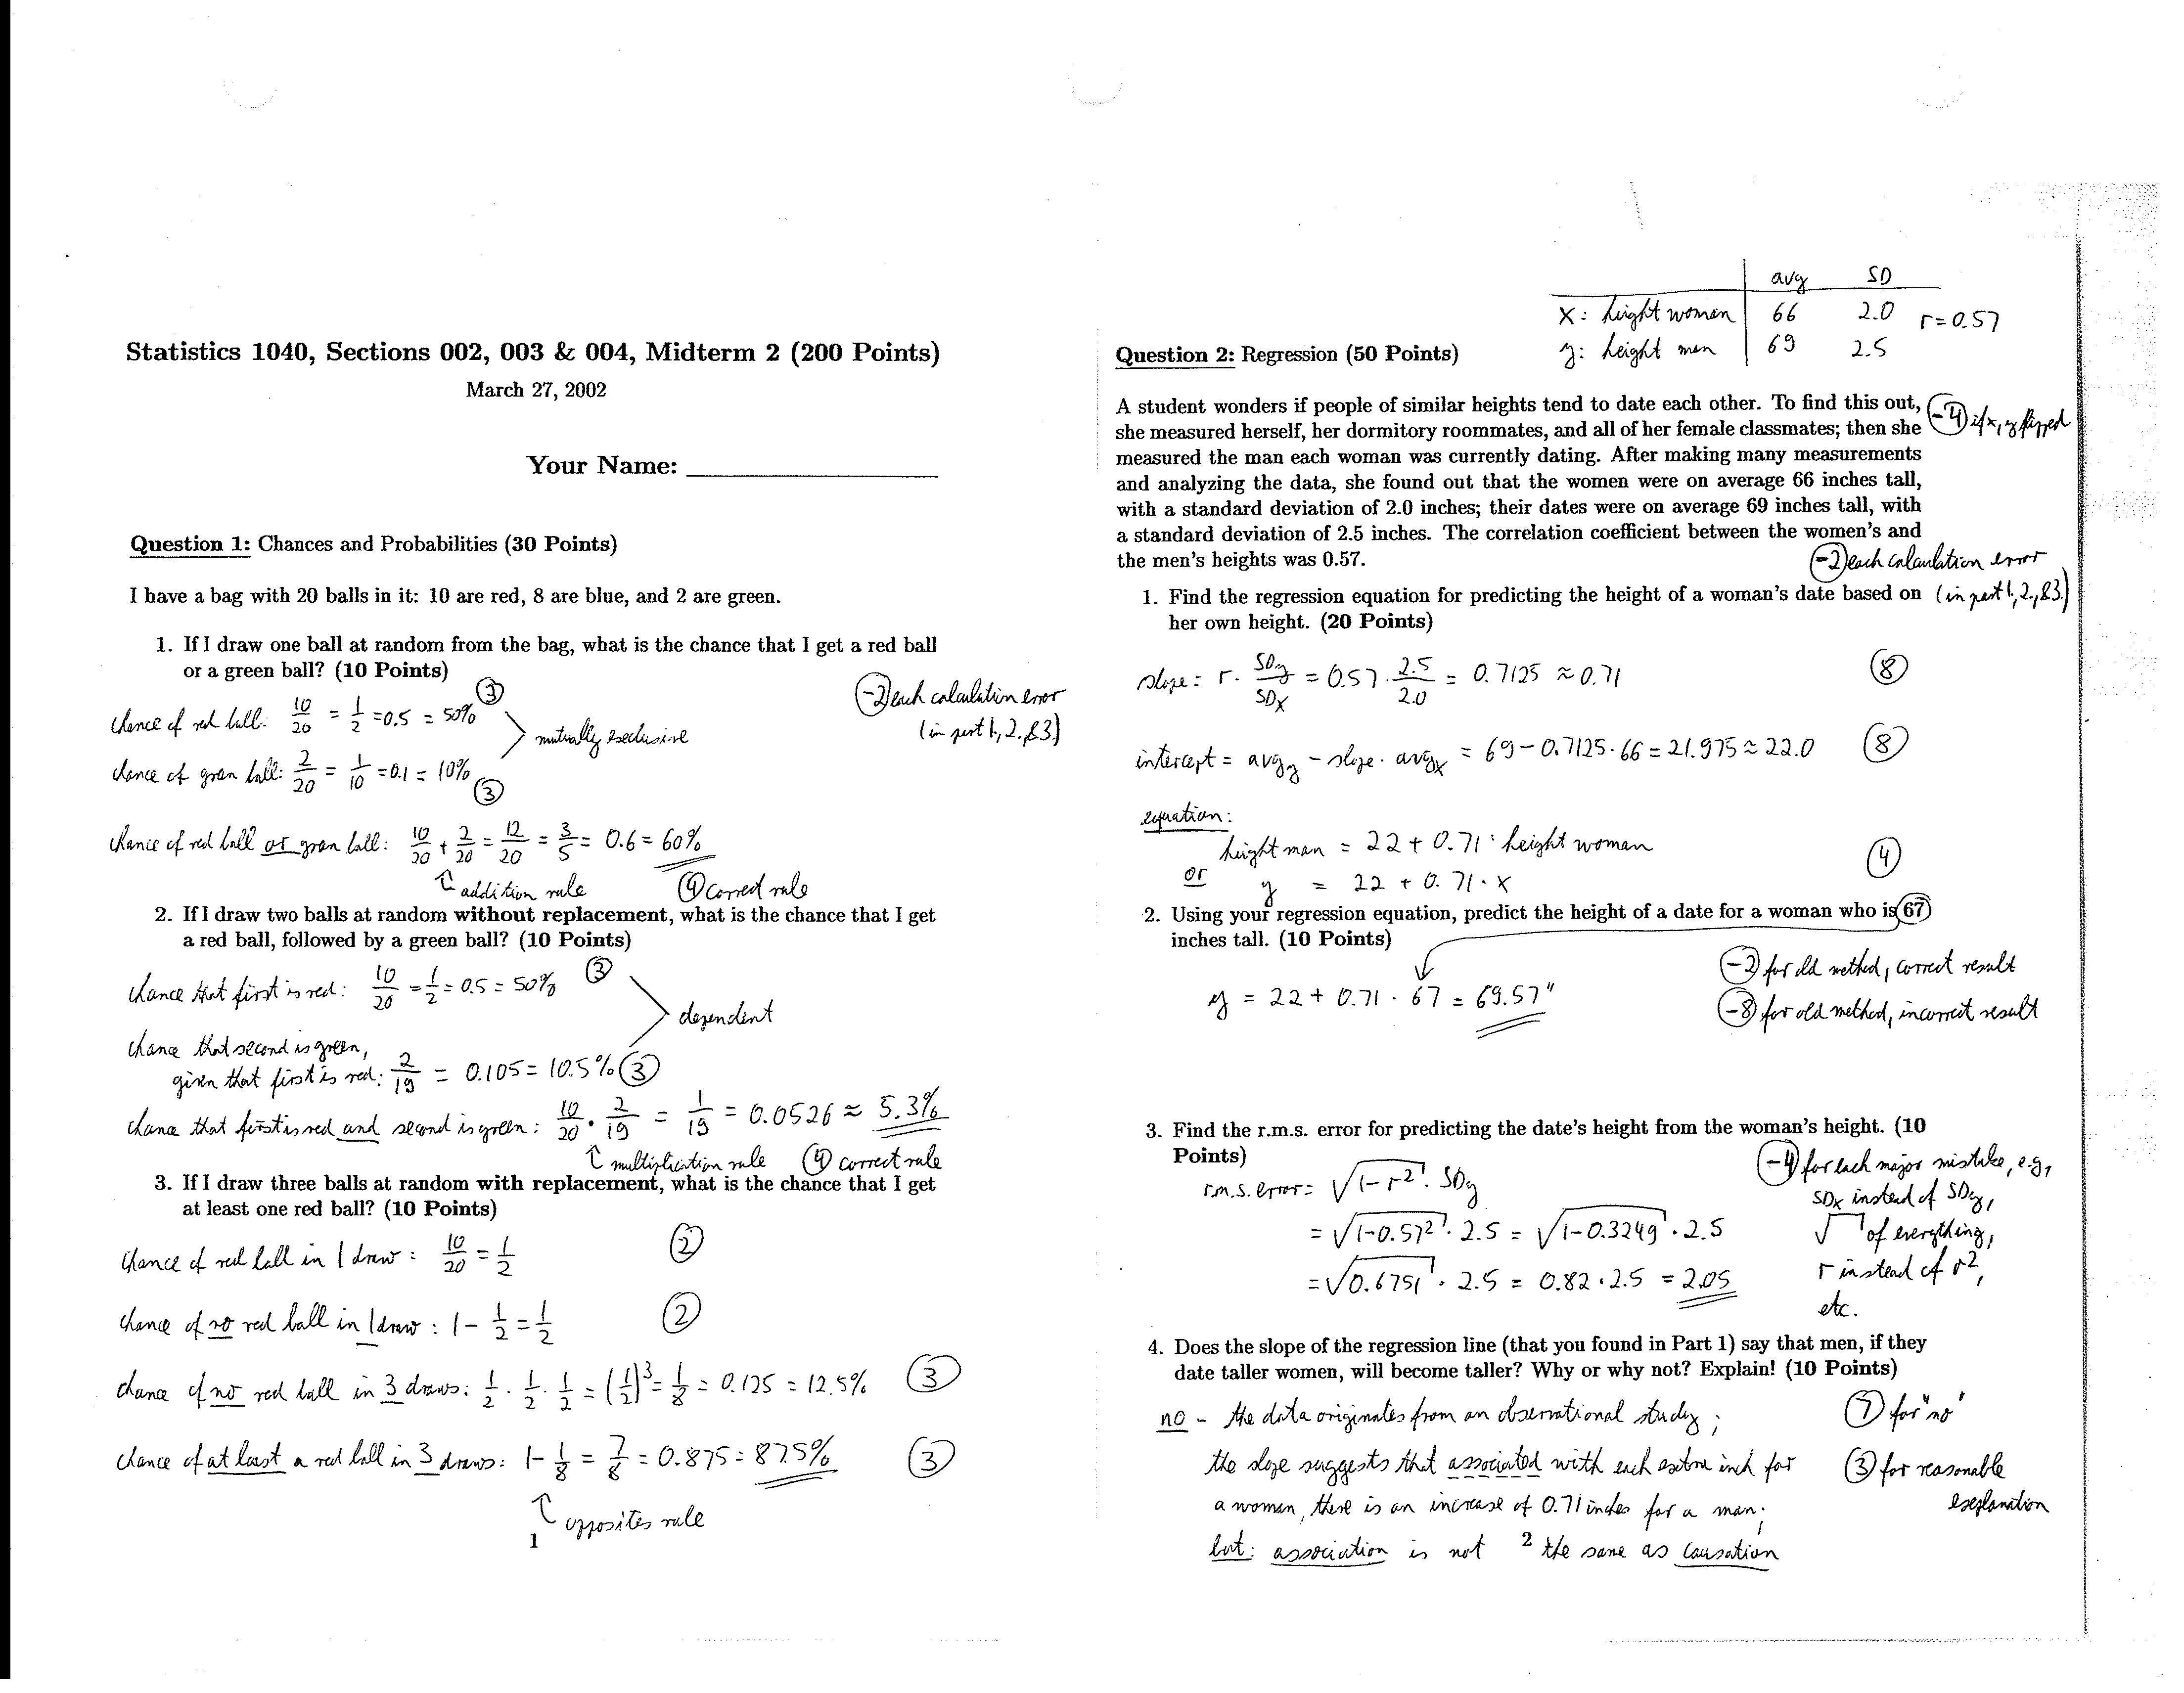 Statistics 1040, Sections 002, 003 & 004, Midterm 2 (200 Points)
March 27, 2002
Your Name: ____________
Question 1: Chances and Probabilities (30 Points)
I have a bag with 20 balls in it: 10 are red, 8 are blue, and 2 are green.
1. If I draw one ball at random from the bag, what is the chance that I get a red ball
or a green ball? (10 Points)
chance of red ball: 10/20 = 1/2 = 0.5 = 50% (3)
mutually exclusive
chance of green ball: 2/20 = 1/10 = 0.1 = 10% (3)
(-2) each calculation error
(in part 1, 2, & 3.)
chance of red ball or green ball: 10/20 + 2/20 = 12/20 = 3/5 = 0.6 = 60%
↑ addition rule (4) correct rule
2. If I draw two balls at random without replacement, what is the chance that I get
a red ball, followed by a green ball? (10 Points)
chance that first is red: 10/20 = 1/2 = 0.5 = 50% (3)
dependent
chance that second is green,
given that first is red: 2/19 = 0.105 = 10.5% (3)
chance that first is red and second is green: 10/20 · 2/19 = 1/19 = 0.0526 ≈ 5.3%
↑ multiplication rule (4) correct rule
3. If I draw three balls at random with replacement, what is the chance that I get
at least one red ball? (10 Points)
chance of red ball in 1 draw: 10/20 = 1/2 (2)
chance of no red ball in 1 draw: 1 - 1/2 = 1/2 (2)
chance of no red ball in 3 draws: 1/2 · 1/2 · 1/2 = (1/2)³ = 1/8 = 0.125 = 12.5% (3)
chance of at least a red ball in 3 draws: 1 - 1/8 = 7/8 = 0.875 = 87.5% (3)
↑ opposites rule
1
avg SD
x: height women 66 2.0 r = 0.57
y: height men 69 2.5
Question 2: Regression (50 Points)
A student wonders if people of similar heights tend to date each other. To find this out,
she measured herself, her dormitory roommates, and all of her female classmates; then she
measured the man each woman was currently dating. After making many measurements
and analyzing the data, she found out that the women were on average 66 inches tall,
with a standard deviation of 2.0 inches; their dates were on average 69 inches tall, with
a standard deviation of 2.5 inches. The correlation coefficient between the women's and
the men's heights was 0.57.
(-4) if x, y flipped
(-2) each calculation error
(in part 1, 2, & 3.)
1. Find the regression equation for predicting the height of a woman's date based on
her own height. (20 Points)
slope = r · SDy/SDx = 0.57 · 2.5/2.0 = 0.7125 ≈ 0.71 (8)
intercept = avgy - slope · avgx = 69 - 0.7125 · 66 = 21.975 ≈ 22.0 (8)
equation:
height man = 22 + 0.71 · height woman (4)
or y = 22 + 0.71 · x
2. Using your regression equation, predict the height of a date for a woman who is 67
inches tall. (10 Points)
y = 22 + 0.71 · 67 = 69.57"
(-2) for old method, correct result
(-8) for old method, incorrect result
3. Find the r.m.s. error for predicting the date's height from the woman's height. (10
Points)
r.m.s. error = √(1-r²) · SDy
= √(1-0.57²) · 2.5 = √(1-0.3249) · 2.5
= √0.6751 · 2.5 = 0.82 · 2.5 = 2.05
(-4) for each major mistake, e.g.,
SDx instead of SDy,
√ of everything,
r instead of r²,
etc.
4. Does the slope of the regression line (that you found in Part 1) say that men, if they
date taller women, will become taller? Why or why not? Explain! (10 Points)
no - the data originates from an observational study; (7) for "no"
the slope suggests that associated with each extra inch for (3) for reasonable
explanation
a woman, there is an increase of 0.71 inches for a man;
but: association is not the same as causation
2